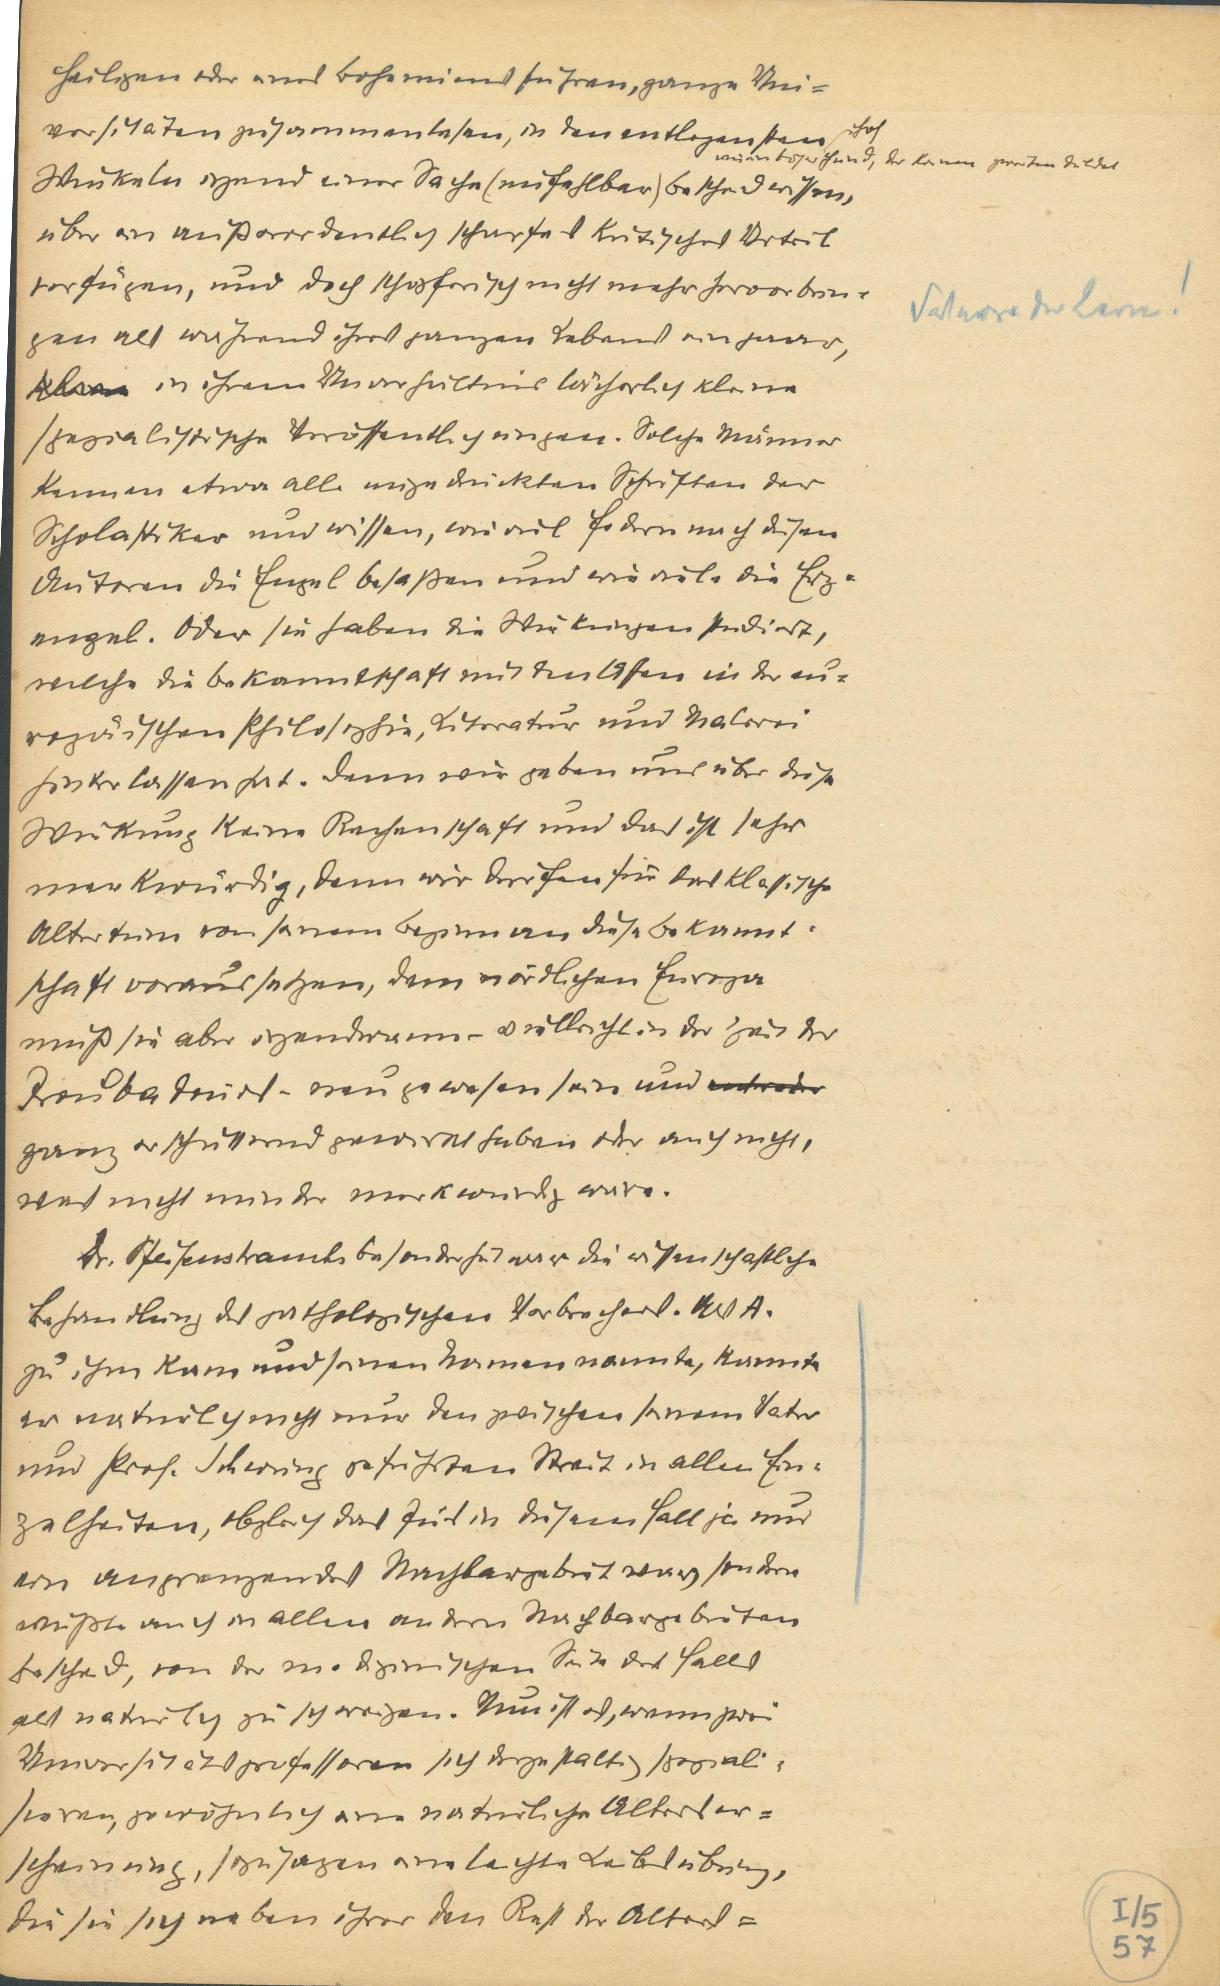 Heiligen oder eines Bohemiens führen, ganze Uni=
versitäten zusammenlesen, in den entlegensten
wie ein böser Hund, der keinen zweiten duldet
Winkeln irgend einer Sache (unfehlbar) bescheid wissen,
über ein außerordentlich scharfes kritisches Urteil
verfügen, und doch schöpferisch nicht mehr hervorbrin=
gen als während ihres ganzen Lebens ein paar,
kleine in ihrem Unverhältnis lächerlich kleine
spezialistische Veröffentlichungen. Solche Männer
kennen etwa alle ungedruckten Schriften der
Scholastiker und wissen, wieviel Federn nach diesen
Autoren die Engel besaßen und wie viele die Erz=
engel. Oder sie haben die Wirkungen studiert,
welche die Bekanntschaft mit den Affen in der eu=
ropäischen Philosophie, Literatur und Malerei
hinterlassen hat. Denn wir geben uns über diese
Wirkung keine Rechenschaft und das ist sehr
merkwürdig, denn wir dürfen für das klassische
Altertum von seinem Beginn an diese Bekannt=
schaft voraussetzen, dem nördlichen Europa
muß sie aber irgendwann – vielleicht in der Zeit der
Troubadours – neu gewesen sein und entweder
ganz erschütternd gewirkt haben oder auch nicht,
was nicht minder merkwürdig wäre.
Dr. Pfeifenstrauchs besonderheit war die wissenschaftliche
Behandlung des pathologischen Verbrechers. Als A.
zu ihm kam und seinen Namen nannte, kannte
er natürlich nicht nur den zwischen seinem Vater
und Prof. Schwung geführten Streit in allen Ein=
zelheiten, obgleich das Jus in diesem Fall ja nur
ein angrenzendes Nachbargebiet war, sondern
wußte auch in allen andern Nachbargebieten
bescheid, von der medizinischen Seite des Falls
als natürlich zu schweigen. Nun ist es, wenn zwei
Universitätsprofessoren sich dergestaltig speziali=
sieren, gewöhnlich eine natürliche Alterser=
scheinung, sozusagen eine leichte Leibesübung,
die sie sich neben ihrer den Rest der Alters=
I/5
57